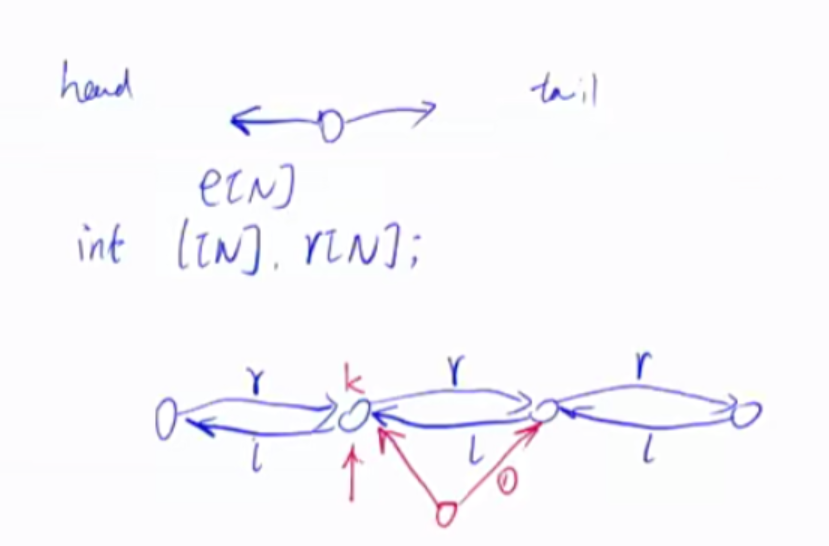 head tail
e[N]
int l[N], r[N];
r k r r
l l l
①